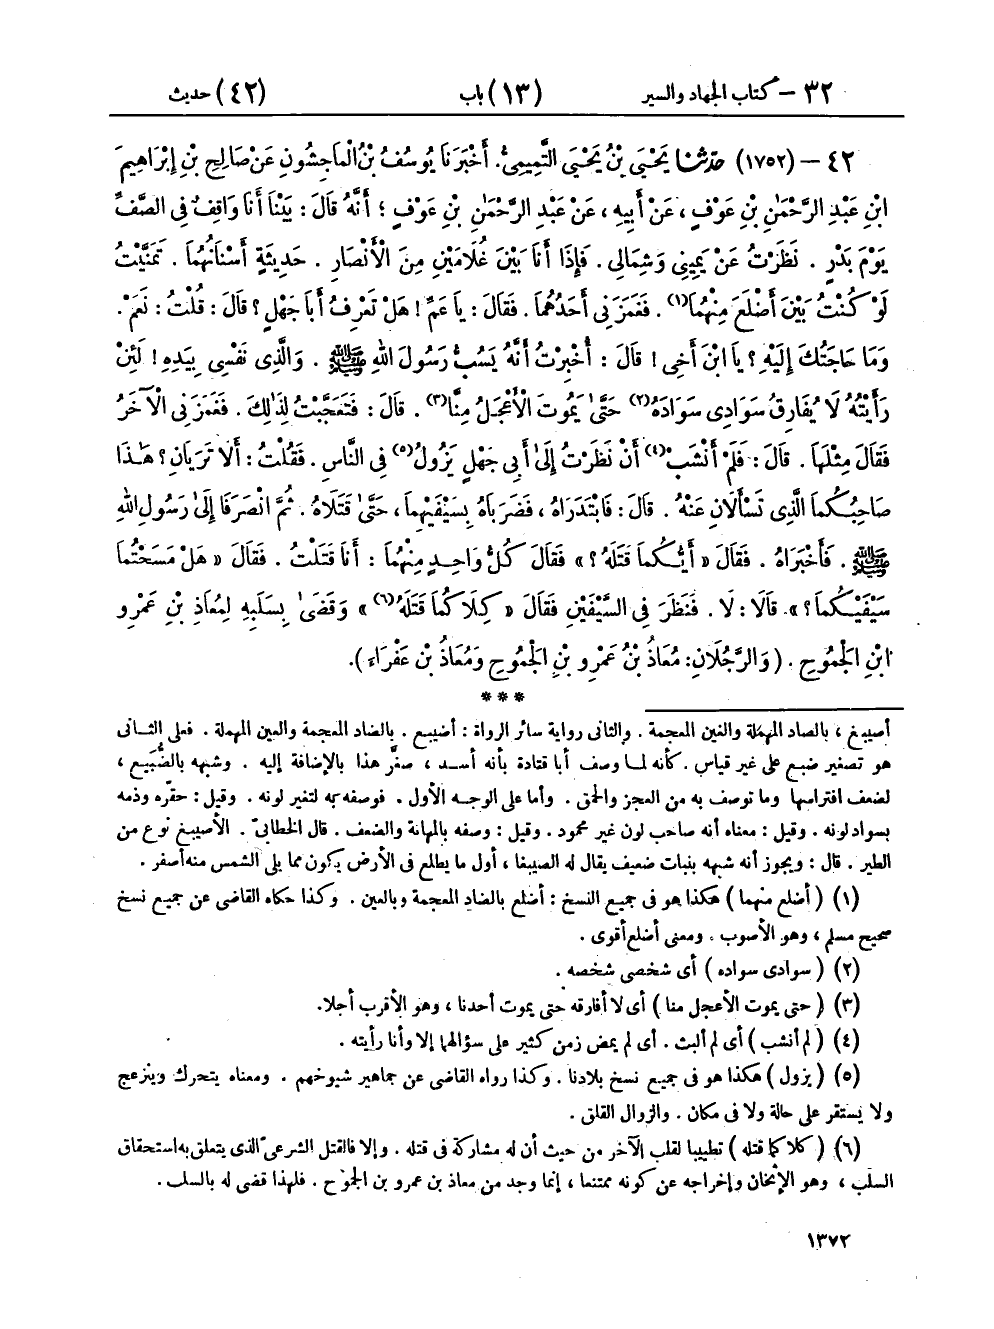 ٣٢ – كتاب الجهاد والسير (١٣) باب (٤٢) حديث
٤٢ – (١٧٥٢) حَدَّثَنَا يَحْيَى بْنُ يَحْيَى التَّمِيمِيُّ. أَخْبَرَنَا يُوسُفُ بْنُ الْمَاجِشُونِ عَنْ صَالِحِ بْنِ إِبْرَاهِيمَ
ابْنِ عَبْدِ الرَّحْمَٰنِ بْنِ عَوْفٍ ، عَنْ أَبِيهِ ، عَنْ عَبْدِ الرَّحْمَٰنِ بْنِ عَوْفٍ ؛ أَنَّهُ قَالَ : بَيْنَا أَنَا وَاقِفٌ فِى الصَّفِّ
يَوْمَ بَدْرٍ . نَظَرْتُ عَنْ يَمِينِى وَشِمَالِى . فَإِذَا أَنَا بَيْنَ غُلَامَيْنِ مِنَ الْأَنْصَارِ . حَدِيثَةٍ أَسْنَانُهُمَا . تَمَنَّيْتُ
لَوْ كُنْتُ بَيْنَ أَضْلَعَ مِنْهُمَا(١) . فَغَمَزَنِى أَحَدُهُمَا . فَقَالَ : يَا عَمِّ ! هَلْ تَعْرِفُ أَبَا جَهْلٍ ؟ قَالَ : قُلْتُ : نَعَمْ .
وَمَا حَاجَتُكَ إِلَيْهِ ؟ يَا ابْنَ أَخِى ! قَالَ : أُخْبِرْتُ أَنَّهُ يَسُبُّ رَسُولَ اللهِ ﷺ . وَالَّذِى نَفْسِى بِيَدِهِ ! لَئِنْ
رَأَيْتُهُ لَا يُفَارِقُ سَوَادِى سَوَادَهُ(٢) حَتَّىٰ يَمُوتَ الْأَعْجَلُ مِنَّا(٣) . قَالَ : فَتَعَجَّبْتُ لِذَٰلِكَ . فَغَمَزَنِى الْآخَرُ
فَقَالَ مِثْلَهَا . قَالَ : فَلَمْ أَنْشَبْ(٤) أَنْ نَظَرْتُ إِلَىٰ أَبِى جَهْلٍ يَزُولُ(٥) فِى النَّاسِ . فَقُلْتُ : أَلَا تَرَيَانِ ؟ هَٰذَا
صَاحِبُكُمَا الَّذِى تَسْأَلَانِ عَنْهُ . قَالَ : فَابْتَدَرَاهُ ، فَضَرَبَاهُ بِسَيْفَيْهِمَا ، حَتَّىٰ قَتَلَاهُ . ثُمَّ انْصَرَفَا إِلَىٰ رَسُولِ اللهِ
ﷺ . فَأَخْبَرَاهُ . فَقَالَ « أَيُّكُمَا قَتَلَهُ ؟ » فَقَالَ كُلُّ وَاحِدٍ مِنْهُمَا : أَنَا قَتَلْتُ . فَقَالَ « هَلْ مَسَحْتُمَا
سَيْفَيْكُمَا ؟ » . قَالَا : لَا . فَنَظَرَ فِى السَّيْفَيْنِ فَقَالَ « كِلَاكُمَا قَتَلَهُ(٦) » وَقَضَىٰ بِسَلَبِهِ لِمُعَاذِ بْنِ عَمْرِو
ابْنِ الْجَمُوحِ . ( وَالرَّجُلَانِ : مُعَاذُ بْنُ عَمْرِو بْنِ الْجَمُوحِ وَمُعَاذُ بْنُ عَفْرَاءَ ) .
***
أصيبغ ، بالصاد المهملة والغين المعجمة . والثانى رواية سائر الرواة : أضيبع . بالضاد المعجمة والعين المهملة . فعلى الثانى
هو تصغير ضبع على غير قياس . كأنه لما وصف أبا قتادة بأنه أسد ، صغَّر هذا بالإضافة إليه . وشبهه بالضُّبيع ،
لضعف افتراسها وما توصف به من العجز والحمق . وأما على الوجه الأول . فوصفه به لتغير لونه . وقيل : حقّره وذمه
بسواد لونه . وقيل : معناه أنه صاحب لون غير محمود . وقيل : وصفه بالمهانة والضعف . قال الخطابىّ . الأصيبغ نوع من
الطير . قال : ويجوز أنه شبهه بنبات ضعيف يقال له الصيبغا ، أول ما يطلع فى الأرض يكون مما يلى الشمس منه أصفر .
(١) ( أضلع منهما ) هكذا هو فى جميع النسخ : أضلع بالضاد المعجمة وبالعين . وكذا حكاه القاضى عن جميع نسخ
صحيح مسلم ، وهو الأصوب . ومعنى أضلع أقوى .
(٢) ( سوادى سواده ) أى شخصى شخصه .
(٣) ( حتى يموت الأعجل منا ) أى لا أفارقه حتى يموت أحدنا ، وهو الأقرب أجلا.
(٤) ( لم أنشب ) أى لم ألبث . أى لم يمض زمن كثير على سؤالهما إلا وأنا رأيته .
(٥) ( يزول ) هكذا هو فى جميع نسخ بلادنا . وكذا رواه القاضى عن جماهير شيوخهم . ومعناه يتحرك وينزعج
ولا يستقر على حالة ولا فى مكان . والزوال القلق .
(٦) ( كلاكما قتله ) تطييبا لقلب الآخر من حيث أن له مشاركة فى قتله . وإلا فالقتل الشرعىّ الذى يتعلق به استحقاق
السلب ، وهو الإثخان وإخراجه عن كونه ممتنعا ، إنما وجد من معاذ بن عمرو بن الجموح . فلهذا قضى له بالسلب .
١٣٧٢